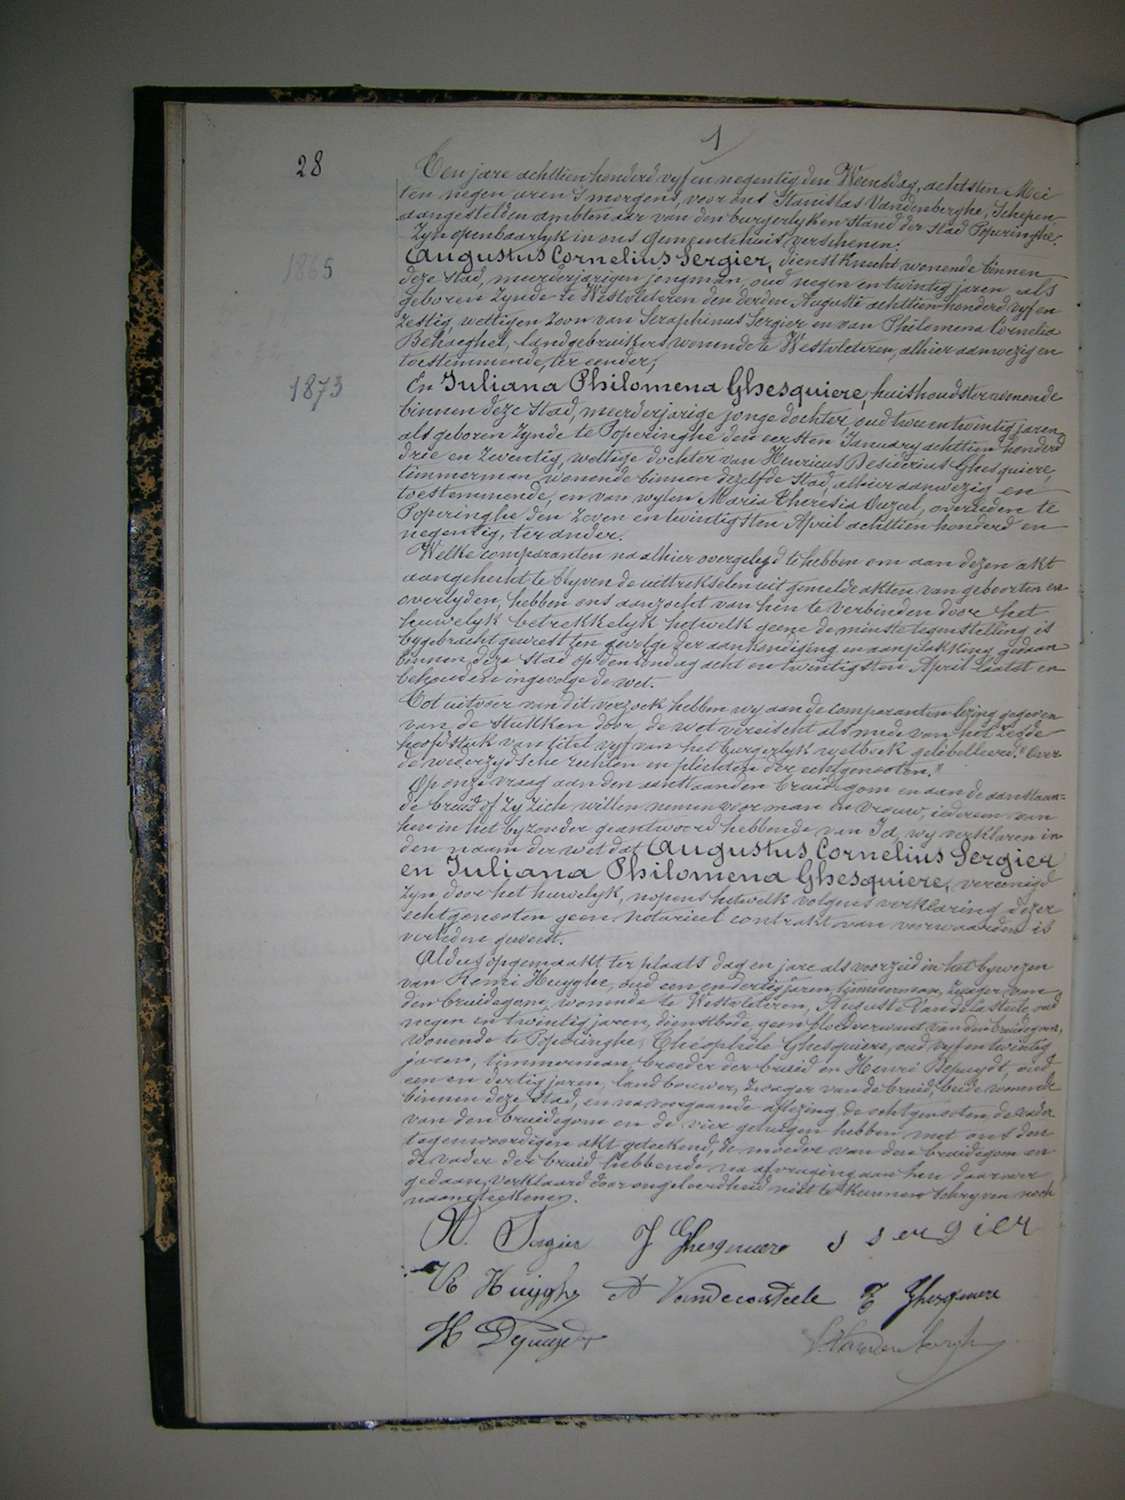 1
28
Een jare achttien honderd vyf en negentig den Woensdag, achtsten Mei
ten negen uren 's morgens, voor ons Stanislas Vandenberghe, Schepen
aangestelden ambtenaar van den burgerlyken stand der stad Poperinghe,
zyn openbaarlyk in ons gemeentehuis verschenen:
1865
Augustus Cornelius Sergier, dienstknecht, wonende binnen
deze stad, meerderjarigen jongman, oud negen en twintig jaren, als
geboren zynde te Westvleteren den derden Augusti achttien honderd vyf en
zestig, wettigen zoon van Seraphinus Sergier en van Philomena Cornelia
Behaeghel, landgebruikers, wonende te Westvleteren, alhier aanwezig en
toestemmende, ter eender;
1873
En Juliana Philomena Ghesquiere, huishoudster wonende
binnen deze stad, meerderjarige jonge dochter oud twee en twintig jaren,
als geboren zynde te Poperinghe den eersten January achttien honderd
drie en zeventig, wettige dochter van Henricus Desiderius Ghesquiere,
timmerman, wonende binnen dezelfde stad, alhier aanwezig en
toestemmende, en van wylen Maria Theresia Ouzeel, overleden te
Poperinghe den zeven en twintigsten April achttien honderd en
negentig, ter ander.
Welke comparanten na alhier overgelegd te hebben om aan dezen akt
aangehecht te blyven de uittrekselen uit gemelde akten van geboorten en
overlyden, hebben ons aanzocht van hen te verbinden door het
huwelyk betrekkelyk hetwelk geene de minste tegenstelling is
bygebracht geweest ten gevolge der aankondiging en aanplakking gedaan
binnen deze stad op den zondag acht en twintigsten April laatst en
behoudens ingevolge de wet.
Tot uitvoer van dit verzoek hebben wy aan de comparanten lezing gegeven
van de stukken door de wet vereischt als mede van het zesde
hoofdstuk van titel vyf van het burgerlyk wetboek gelibelleerd: "Over
de wederzydsche rechten en plichten der echtgenooten."
Op onze vraag aan den aanstaanden bruidegom en aan de aanstaan=
de bruid of zy zich willen nemen voor man en vrouw, iedereen van
hen in het byzonder geantwoord hebbende van Ja, wy verklaren in
den naam der wet dat Augustus Cornelius Sergier
en Juliana Philomena Ghesquiere, vereenigd
zyn door het huwelyk, nopens hetwelk volgens verklaring dezer
echtgenooten geen notarieel contrakt van voorwaarden is
verleden geweest.
Aldus opgemaakt ter plaats dag en jare als voorzeid in het bywezen
van Henri Huyghe, oud een en dertig jaren, timmerman, zwager van
den bruidegom, wonende te Westvleteren, Auguste Vandecasteele, oud
negen en twintig jaren, dienstbode, geen bloedverwant van den bruidegom,
wonende te Poperinghe, Théophile Ghesquiere, oud vyf en twintig
jaren, timmerman, broeder der bruid en Henri Depuydt, oud
een en dertig jaren, landbouwer, zwager van de bruid, beide wonende
binnen deze stad, en na voorgaande aflezing de echtgenooten, de vader
van den bruidegom en de vier getuigen hebben met ons den
tegenwoordigen akt geteekend, de moeder van den bruidegom en
de vader der bruid hebbende na afvraging aan hen daarover
gedaan, verklaard door ongeleerdheid niet te kunnen schryven noch
naamteekenen.
A. Sergier J Ghesquiere s sergier
H Huyghe A Vandecasteele T Ghesquiere
H Depuydt S. Vandenberghe